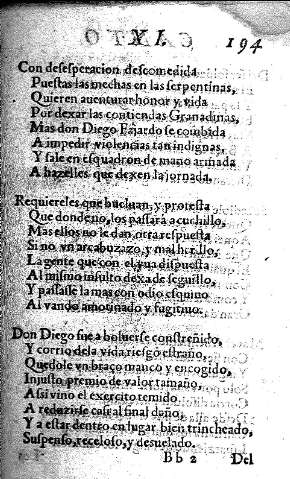 XI. 194
Con desesperacion descomedida
Puestas las mechas en las serpentinas,
Quieren auenturar honor y vida
Por dexar las contiendas Granadinas,
Mas don Diego Fajardo se combida
A impedir violencias tan indignas,
Y sale en esquadron de mano armada
A hazelles que dexen la jornada.
Requiereles que bueluan, y protesta
Que donde no, los passara a cuchillo,
Mas ellos no le dan otra respuesta
Si no vn arcabuzazo, y mal herillo,
La gente que con el yua dispuesta
Al mismo insulto dexa de seguillo,
Y passasse la mas con odio esquino
Al vando amotinado y fugitiuo.
Don Diego fue a boluerse constreñido,
Y corrio de la vida riesgo estraño,
Quedole vn braço manco y encogido,
Injusto premio de valor tamaño,
Assi vino el exercito remido
A reduzirse casi al final daño,
Y a estar dentro en lugar bien trincheado,
Suspenso, receloso, y desuelado.
Bb 2 Del